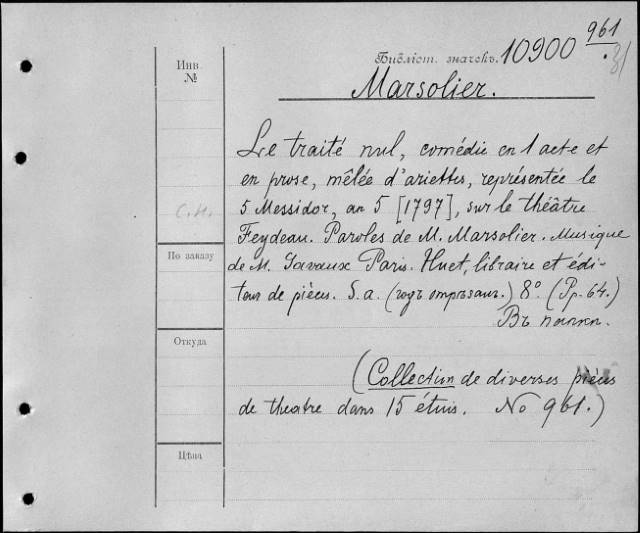 961
Инв.
№
Библіот. значекъ. 10900
Marsolier.
Le traité nul, comédie en 1 acte et
en prose, mêlée d'ariettes, représentée le
5 Messidor, an 5 [1797], sur le théâtre
С.И.
Feydeau. Paroles de M. Marsolier. Musique
По заказу
de M. Gavaux Paris. Huet, libraire et édi-
teur de pièces. S. a. (годъ отрѣзанъ.) 8º. (Pp. 64.)
Въ папкѣ.
Откуда
(Collection de diverses pièces
de theatre dans 15 étuis. No 961.)
Цѣна